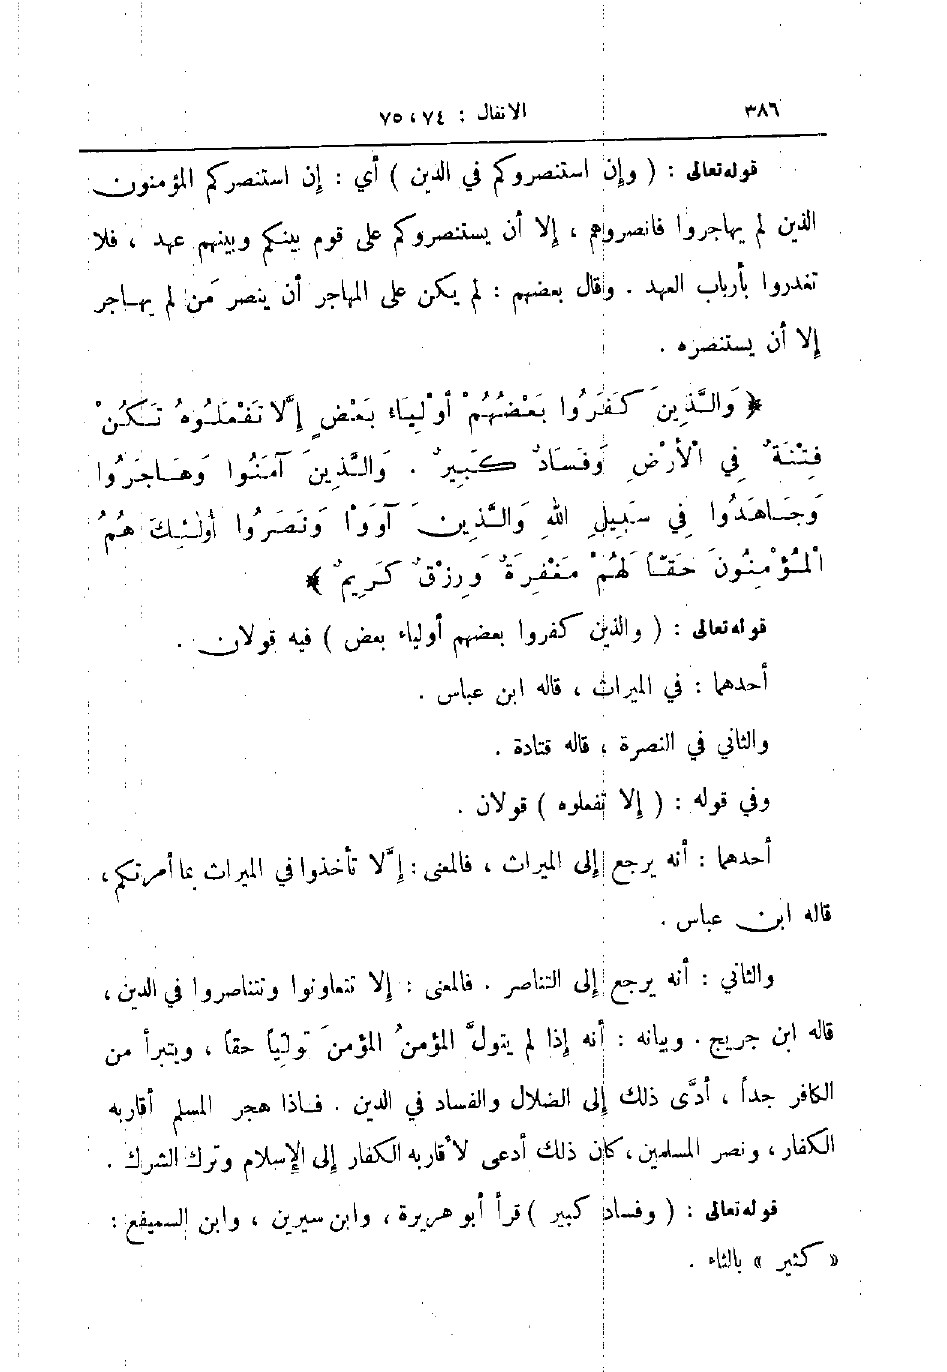 ٣٨٦ الانفال : ٧٤ ، ٧٥
قوله تعالى : ( وإن استنصروكم في الدين ) أي : إن استنصركم المؤمنون
الذين لم يهاجروا فانصروهم ، إلا أن يستنصروكم على قوم بينكم وبينهم عهد ، فلا
تغدروا بأرباب العهد . وقال بعضهم : لم يكن على المهاجر أن ينصر مَن لم يهاجر
إلا أن يستنصره .
﴿ وَالَّذِينَ كَفَرُوا بَعْضُهُمْ أَوْلِيَاء بَعْضٍ إِلَّا تَفْعَلُوهُ تَكُنْ
فِتْنَةٌ فِي الْأَرْضِ وَفَسَادٌ كَبِيرٌ . وَالَّذِينَ آمَنُوا وَهَاجَرُوا
وَجَاهَدُوا فِي سَبِيلِ اللهِ وَالَّذِينَ آوَوْا وَنَصَرُوا أُولٰئِكَ هُمُ
الْمُؤْمِنُونَ حَقّاً لَهُمْ مَغْفِرَةٌ وَرِزْقٌ كَرِيمٌ ﴾
قوله تعالى : ( والذين كفروا بعضهم أولياء بعض ) فيه قولان .
أحدهما : في الميراث ، قاله ابن عباس .
والثاني في النصرة ، قاله قتادة .
وفي قوله : ( إلا تفعلوه ) قولان .
أحدهما : أنه يرجع إلى الميراث ، فالمعنى : إلَّا تأخذوا في الميراث بما أمرتكم ،
قاله ابن عباس .
والثاني : أنه يرجع إلى التناصر . فالمعنى : إلا تتعاونوا وتتناصروا في الدين ،
قاله ابن جريج . وبيانه : أنه إذا لم يتولَّ المؤمنُ المؤمنَ تولّياً حقاً ، ويتبرأ من
الكافر جداً ، أدَّى ذلك إلى الضلال والفساد في الدين . فاذا هجر المسلم أقاربه
الكفار ، ونصر المسلمين ، كان ذلك أدعى لأقاربه الكفار إلى الإسلام وترك الشرك .
قوله تعالى : ( وفساد كبير ) قرأ أبو هريرة ، وابن سيرين ، وابن السميفع :
« كثير » بالثاء .